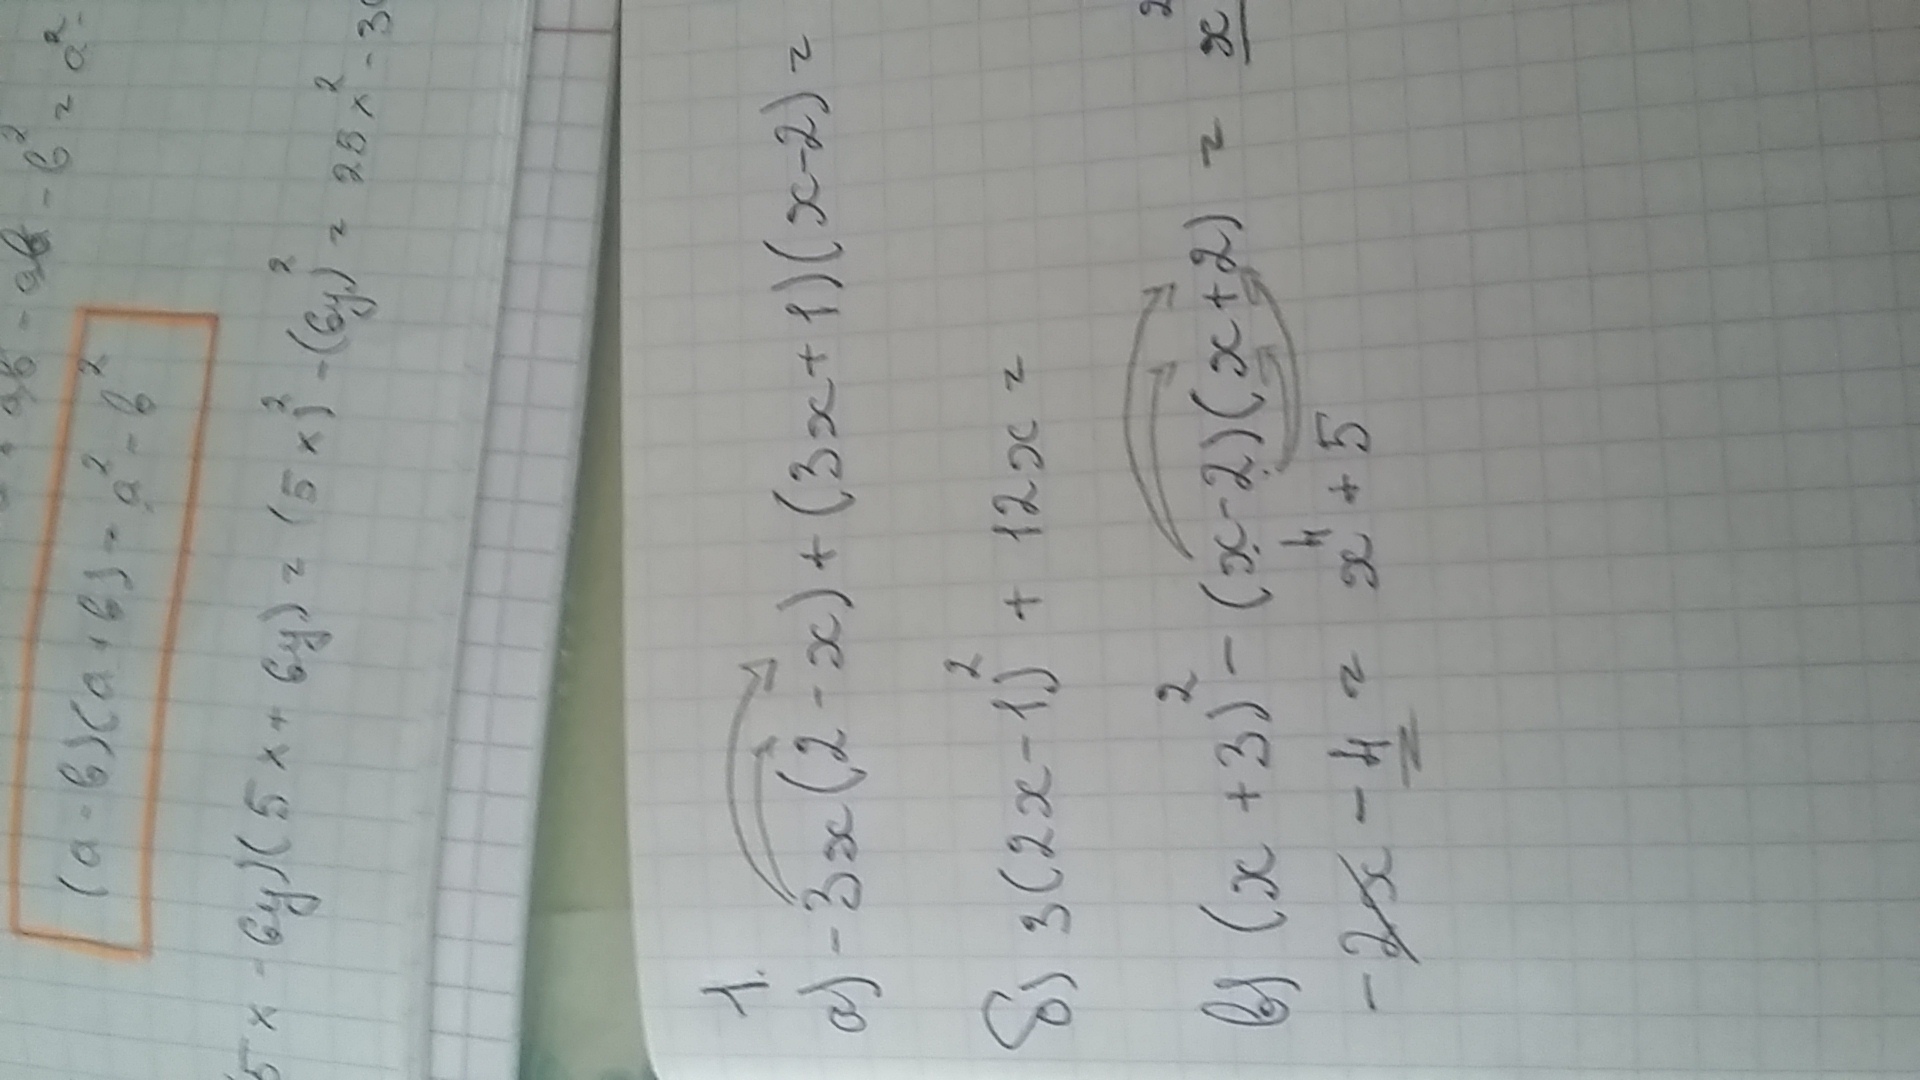 (a-b)(a+b) = a² - b²
5x - 6y)(5x + 6y) = (5x)² - (6y)² = 25x² - 3
1.
а) -3x(2-x) + (3x+1)(x-2) =
б) 3(2x-1)² + 12x =
в) (x+3)² - (x-2)(x+2) = x²
-2x - 4 = x⁴ + 5